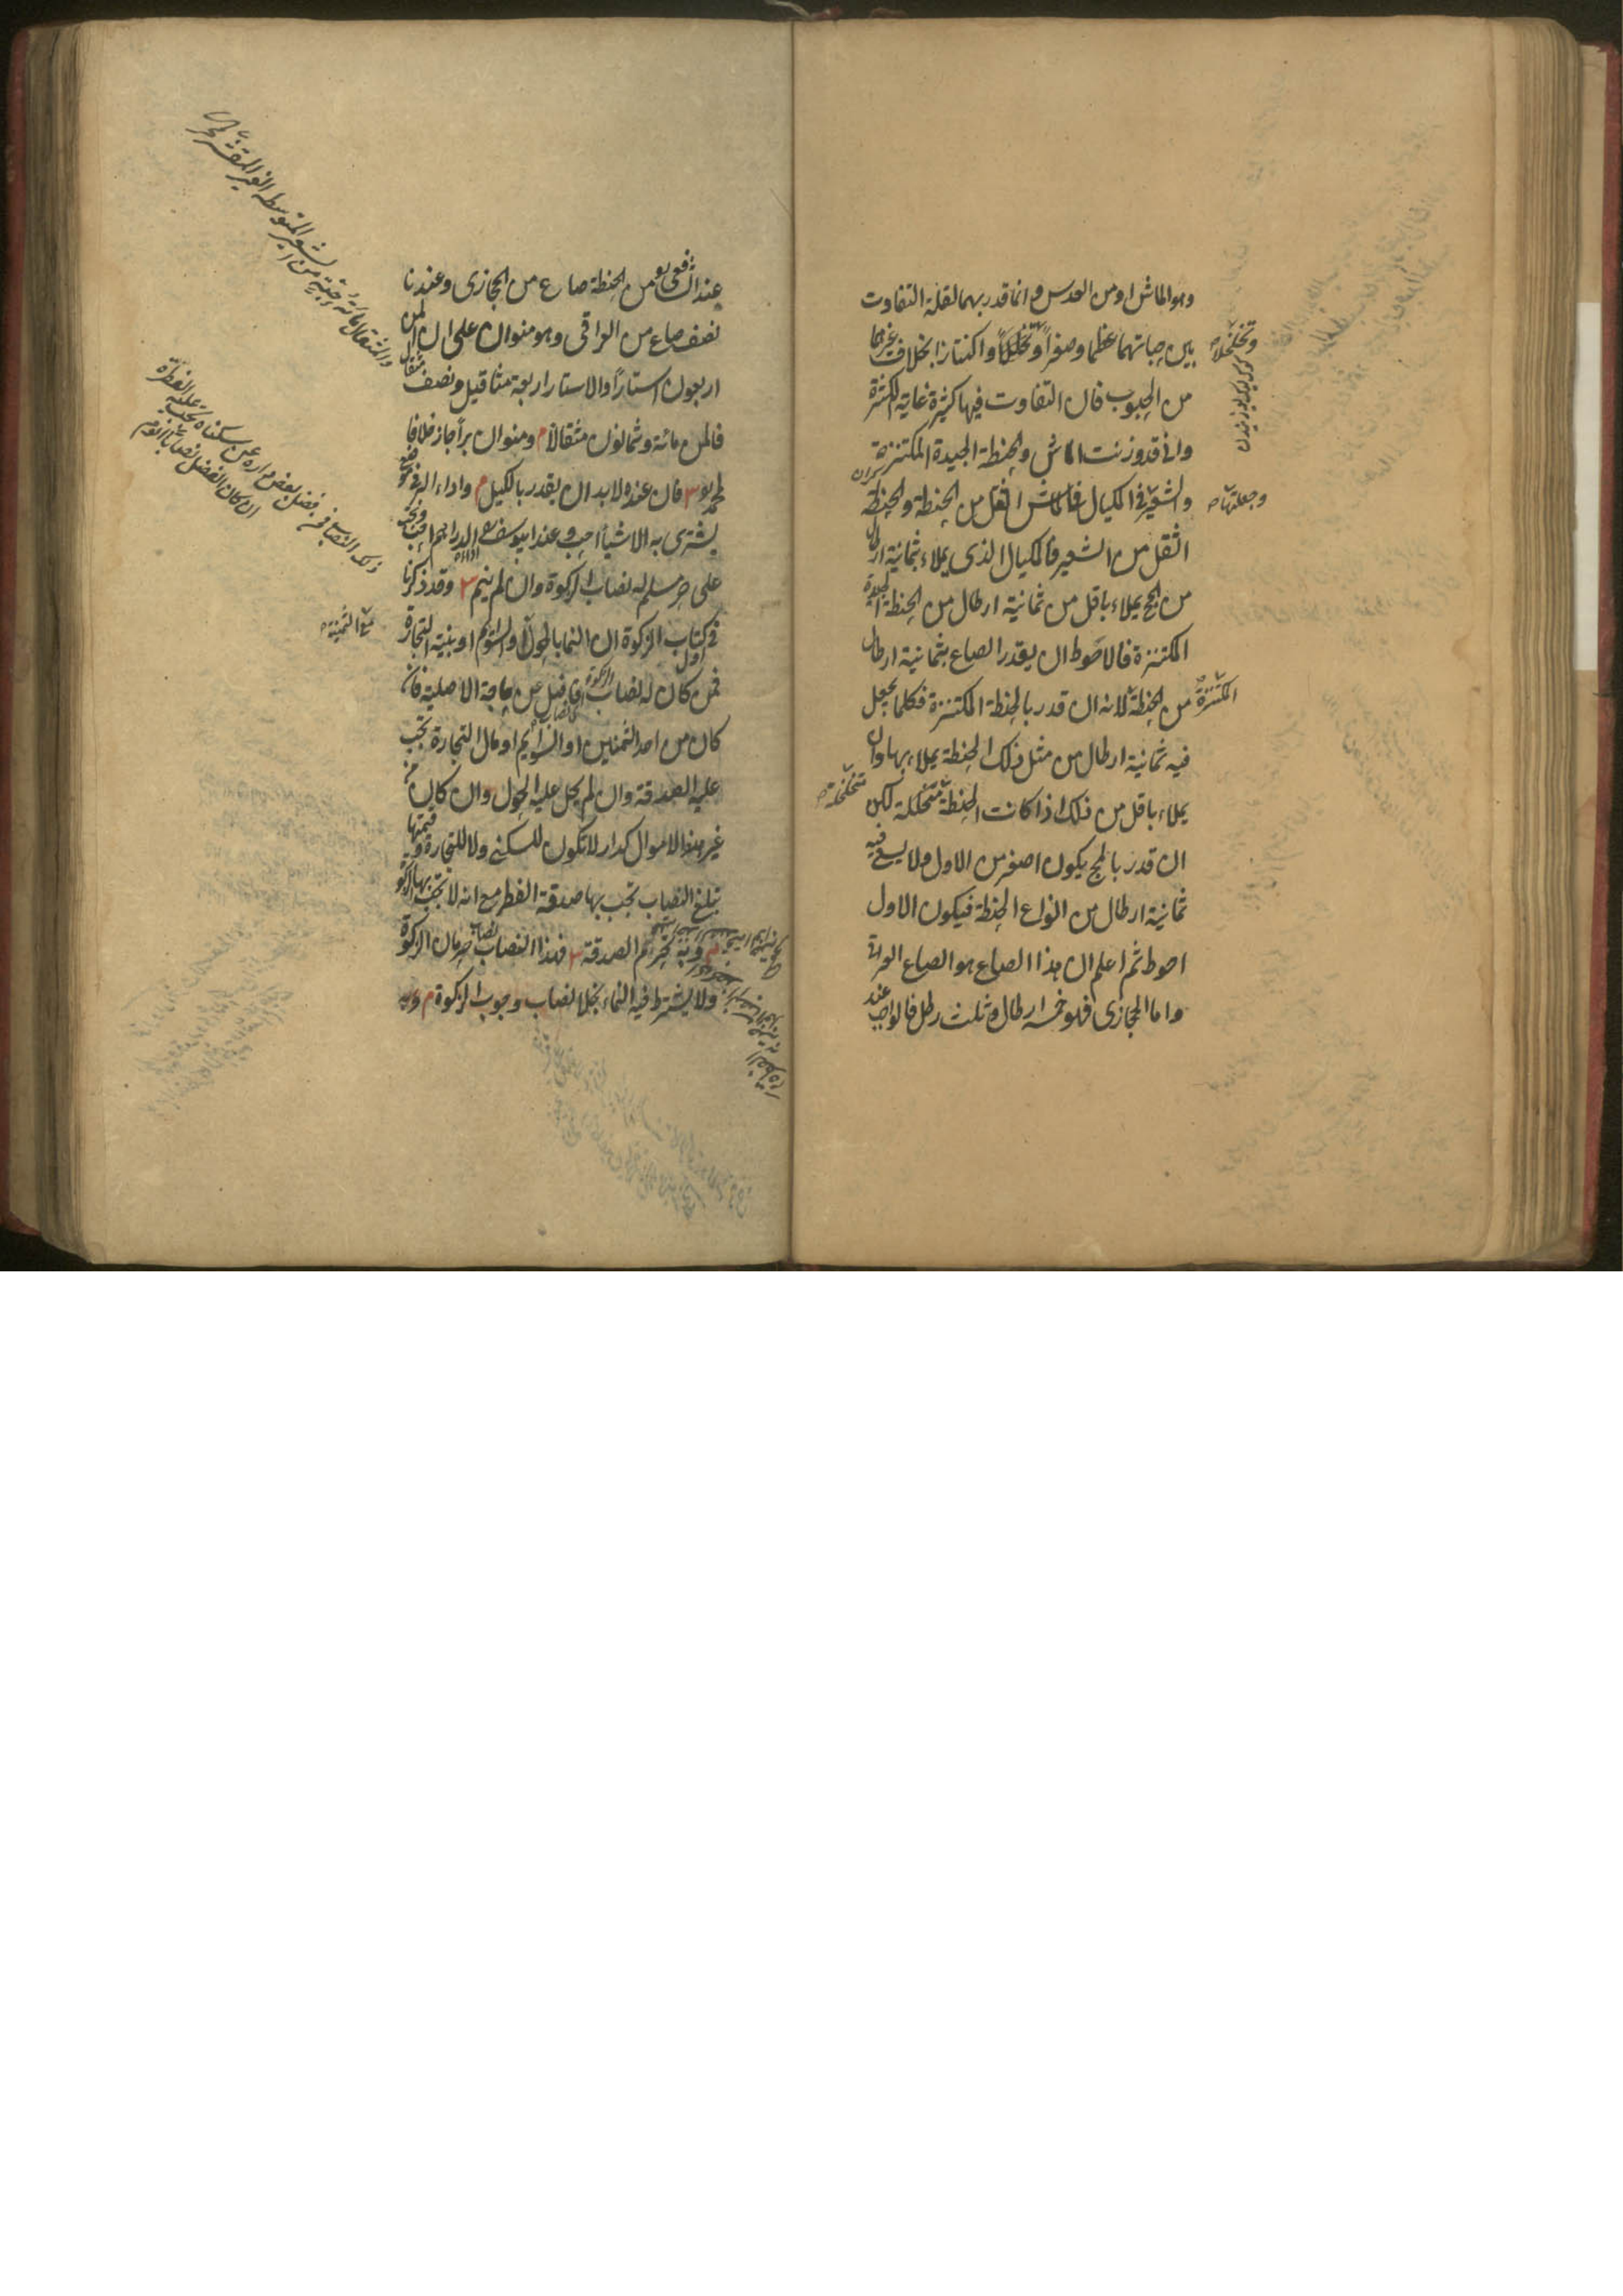 وهو الماش او من العدس وانما قدر بهما لقلة التفاوت
بين حباتهما عظما وصغرا وتخلخلا واكتنازا بخلاف غيرهما
من الحبوب فان التفاوت فيها كثيرة غاية الكثرة
وانى قد وزنت الماش والحنطة الجيدة المكتنزة
والشعير فى المكيال فالماش اثقل من الحنطة والحنطة
اثقل من الشعير فالمكيال الذى يملاء بثمانية ارطال
من المج يملاء باقل من ثمانية ارطال من الحنطة الجيدة
المكتنزة فالاحوط ان يقدر الصاع بثمانية ارطال
من الحنطة لانه ان قدر بالحنطة المكتنزة فكلما يجعل
فيه ثمانية ارطال من مثل ذلك الحنطة يملاء بها وان
يملاء باقل من ذلك اذا كانت الحنطة متخلخلة لكن
ان قدر بالمج يكون اصغر من الاول ولا يسع فيه
ثمانية ارطال من انواع الحنطة فيكون الاول
احوط ثم اعلم ان هذا الصاع هو الصاع العراقى
واما الحجازى فهو خمسة ارطال وثلث رطل فالواجب عند
وتخلخلا
وجعلتها
المكتنزة
متخلخلة
عند الشافعى من الحنطة صاع من الحجازى وعندنا
نصف صاع من العراقى وهو منوان على ان المن
اربعون استارا والاستار اربعة مثاقيل ونصف مثقال
فالمن مائة وثمانون مثقالا م ومنوان برا جاز خلافا
لمحمد فان عنده لابد ان يقدر بالكيل م واداء البر فى موضع
يشترى به الاشيا احب وعند ابيوسف اداء الدراهم احب وتجب
على حر مسلم له نصاب الزكوة وان لم ينم وقد ذكرنا
فى كتاب الزكوة ان النما بالحول او السوم او بنية التجارة
فمن كان له نصاب الزكوة فاضل عن حاجة الاصلية فان
كان من احد الثمنين او السوايم او مال التجارة تجب
عليه الصدقة وان لم يحل عليه الحول وان كان من
غير هذا الاموال كدار لا تكون للسكنى ولا للتجارة وقيمتها
تبلغ النصاب تجب بها صدقة الفطر مع انه لا تجب بها الزكوة
م وبه تحرم الصدقة فهذا النصاب نصاب حرمان الزكوة
ولا يشترط فيه النماء بخلاف نصاب وجوب الزكوة م
والمثقال مائة حبة من الشعير المتوسطة الغير المقشرة
ذلك النصاب فى فضل بعض داره عن سكناه تجب عليه الفطرة
ان كان الفضل نصابا
مع الثمينة